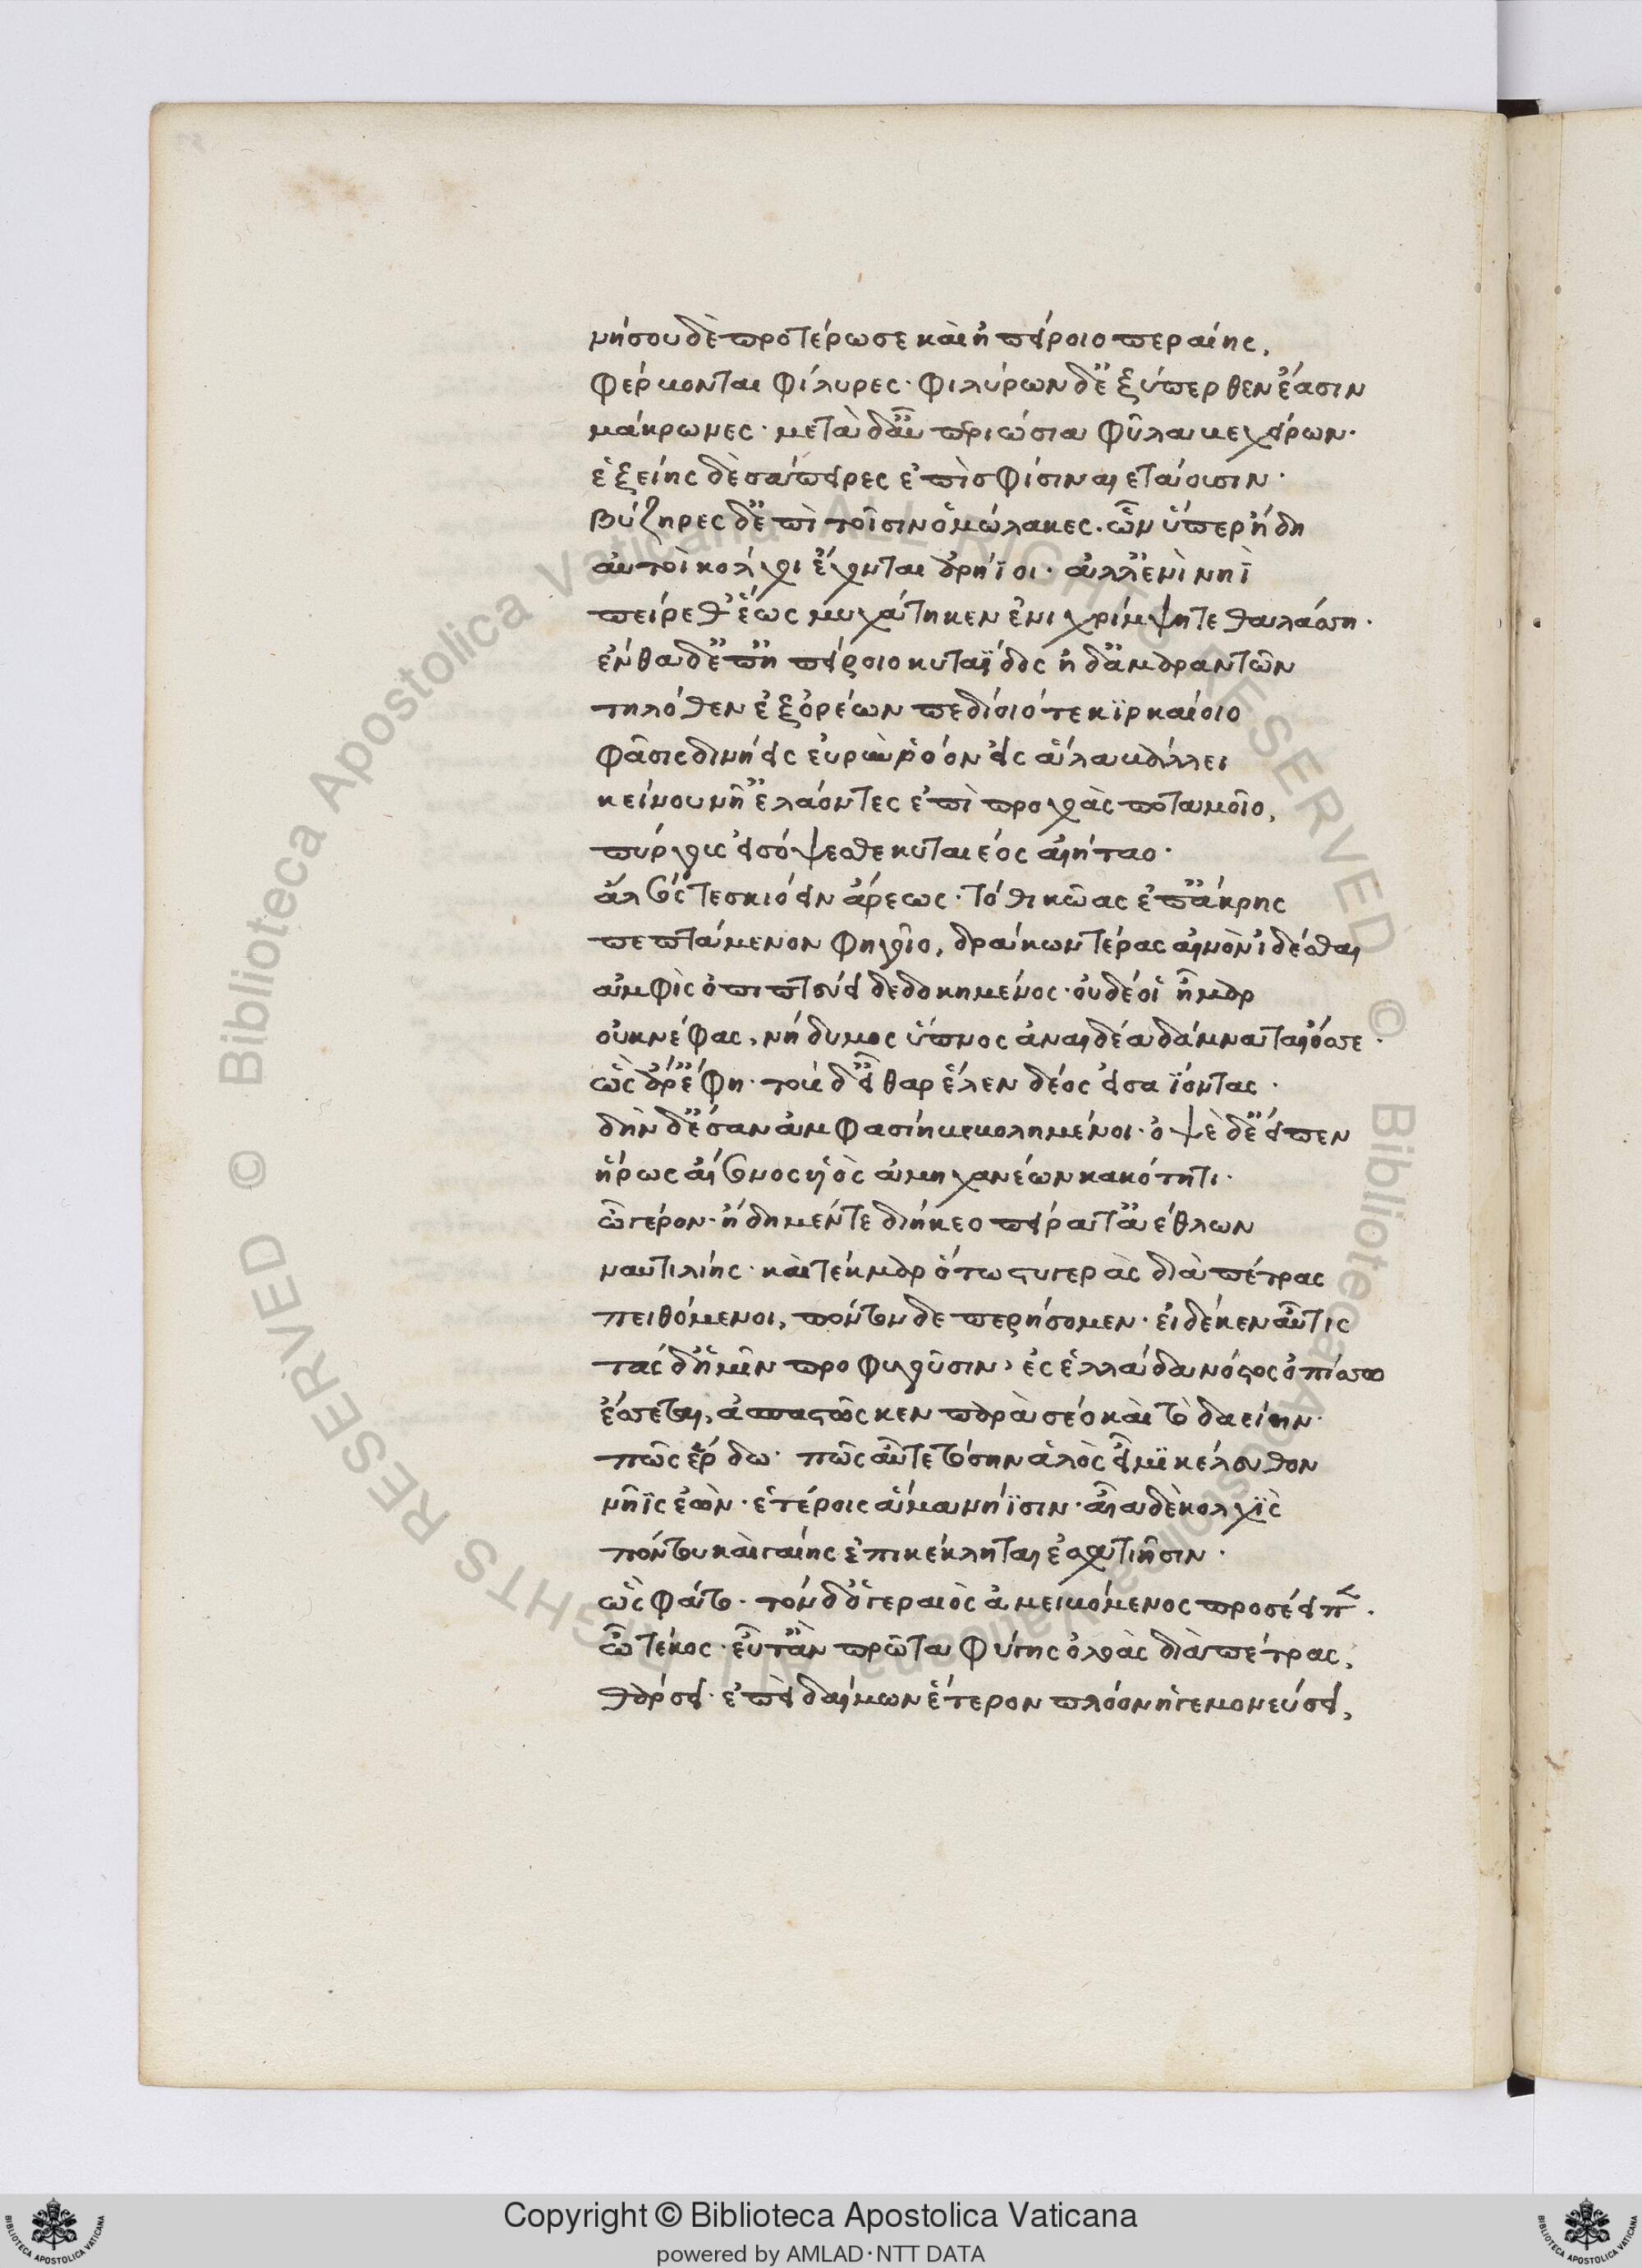 νήσου δὲ προτέρωσε καὶ ἠπείροιο περαίης,
φέρβονται φίλυρες· φιλύρων δ' ἐξύπερθεν ἔασιν
μάκρωνες· μετὰ δ' αὖ περιώσια φῦλα βεχείρων·
ἑξείης δὲ σάπειρες ἐπὶ σφίσι ναιετάουσιν·
βύζηρες δ' ἐπὶ τοῖσιν ὁμώλακες. ὧν ὕπερ ἤδη
αὐτοὶ κόλχοι ἔχονται ἀρήϊοι· ἀλλ' ἐνὶ νηῒ
πείρεθ' ἕως μυχάτη κεν ἐνιχρίμψητε θαλάσση·
ἔνθα δ' ἐπ' ἠπείροιο κυταΐδος ἠδ' ἀμαραντῶν
τηλόθεν ἐξ ὀρέων πεδίοιό τε κϊρκαίοιο
φᾶσις δινήεις εὐρὺν ῥόον εἰς ἅλα βάλλει
κείνου νῆ' ἐλάοντες ἐπὶ προχοὰς ποταμοῖο,
πύργους εἰσόψεσθε κυταιέος αἰήταο·
ἄλσος τε σκιόειν ἄρεως· τόθι κῶας ἐπ' ἄκρης
πεπτάμενον φηγοῖο, δράκων τέρας αἰνὸν ἰδέσθαι
ἀμφὶς ὀπιπτεύει δεδοκημένος· οὐδέ οἱ ἦμαρ
οὐ κνέφας, νήδυμος ὕπνος ἀναιδέα δάμναται ὄσσε·
ὣς ἄρ' ἔφη· τοὺς δ' εἶθαρ ἕλεν δέος εἰσαΐοντας·
δὴν δ' ἔσαν ἀμφασίη βεβολημένοι· ὀψὲ δ' ἔειπεν
ἥρως αἴσονος υἱὸς ἀμηχανέων κακότητι·
ὦ γέρον· ἤδη μέν τε διίκεο πείρατ' ἀέθλων
ναυτιλίης· καὶ τέκμαρ ὅτω στυγερὰς διὰ πέτρας
πειθόμενοι, πόντονδε περήσομεν· εἰ δέ κεν αὖτις
τάς δ' ἡμῖν προφυγοῦσιν, ἐς ἑλλάδα νόστος ὀπίσσω
ἔσσεται, ἀσπαστῶς κεν παρὰ σέο καὶ τὸ δαείην·
πῶς ἔρδω· πῶς αὖτε τόσην ἁλὸς εἶμι κέλευθον
νῆϊς ἐὼν· ἑτέροις ἅμα νήϊσιν· αἶα δὲ κολχὶς
πόντου καὶ γαίης ἐπικέκληται ἐσχατιῆσιν·
ὣς φάτο· τὸν δ' ὁ γεραιὸς ἀμειβόμενος προσέειπ·
ὦ τέκος· εὖτ' ἂν πρῶτα φύγης ὀλοὰς διὰ πέτρας,
θάρσει· ἐπεὶ δαίμων ἕτερον πλόον ἡγεμονεύσει,
Copyright © Biblioteca Apostolica Vaticana
powered by AMLAD·NTT DATA